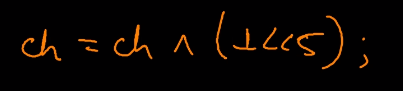 ch = ch ^ (1<<5);